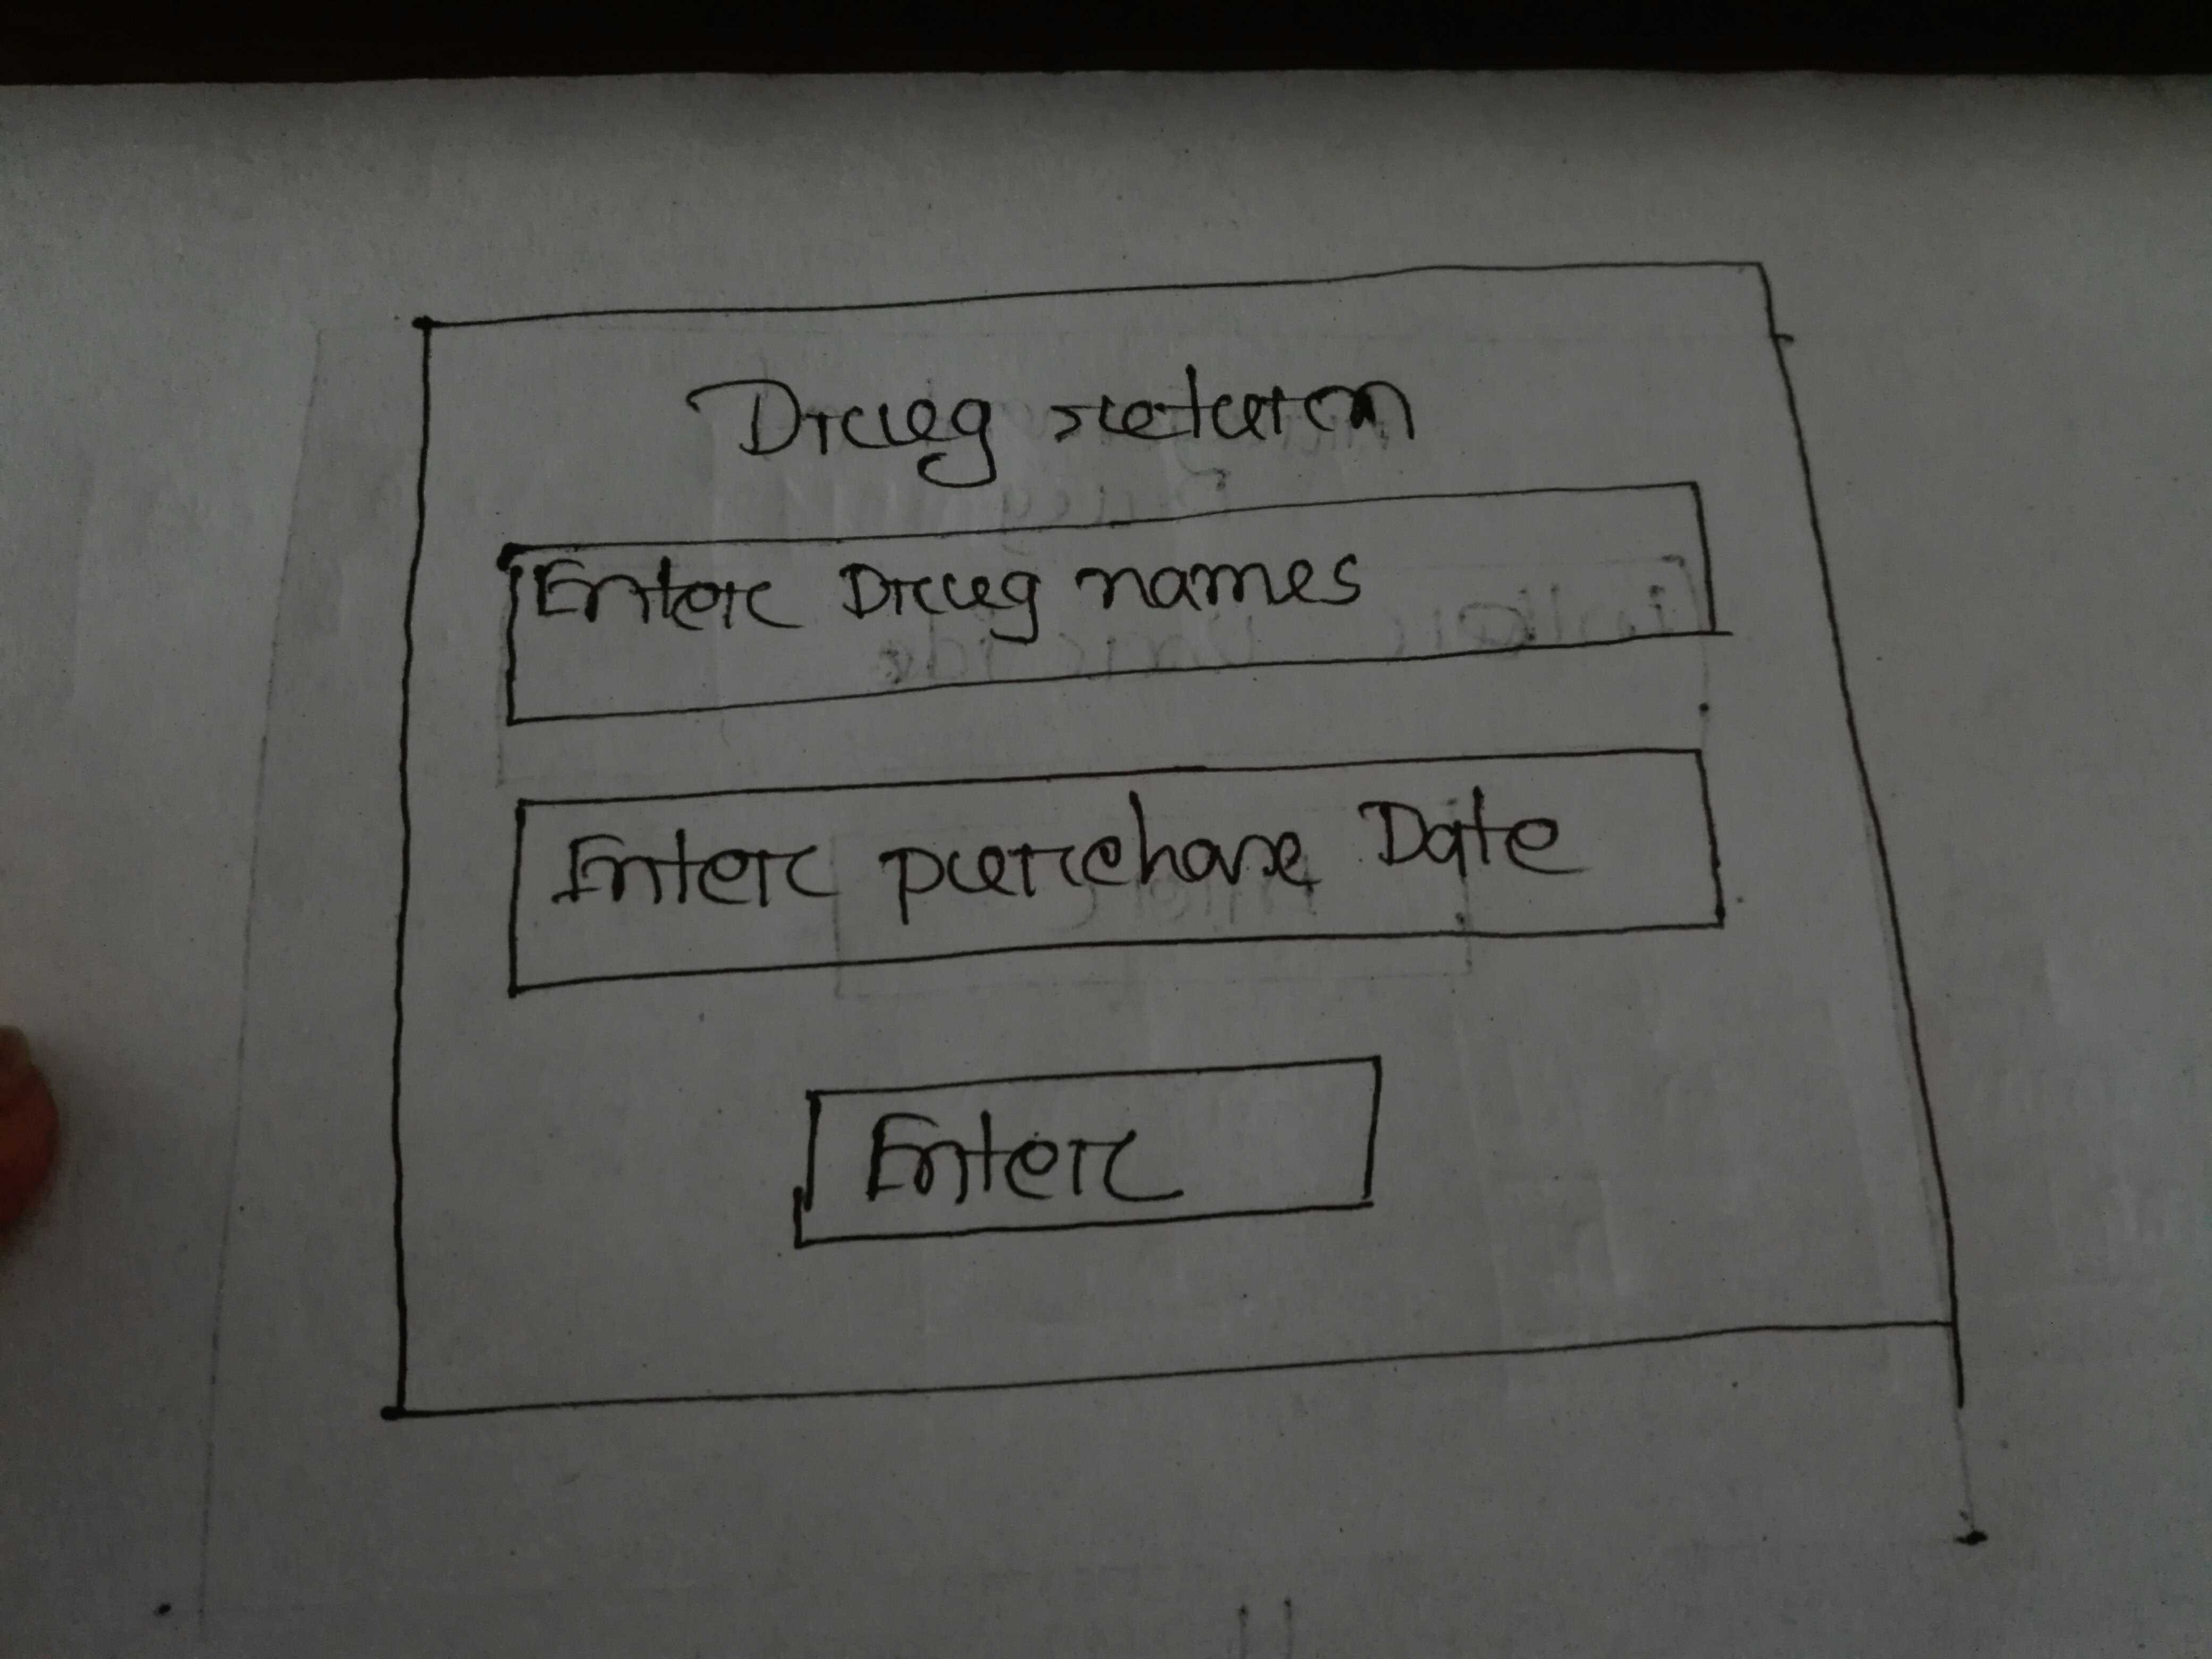 Drug return
Enter Drug names
Enter purchase Date
Enter